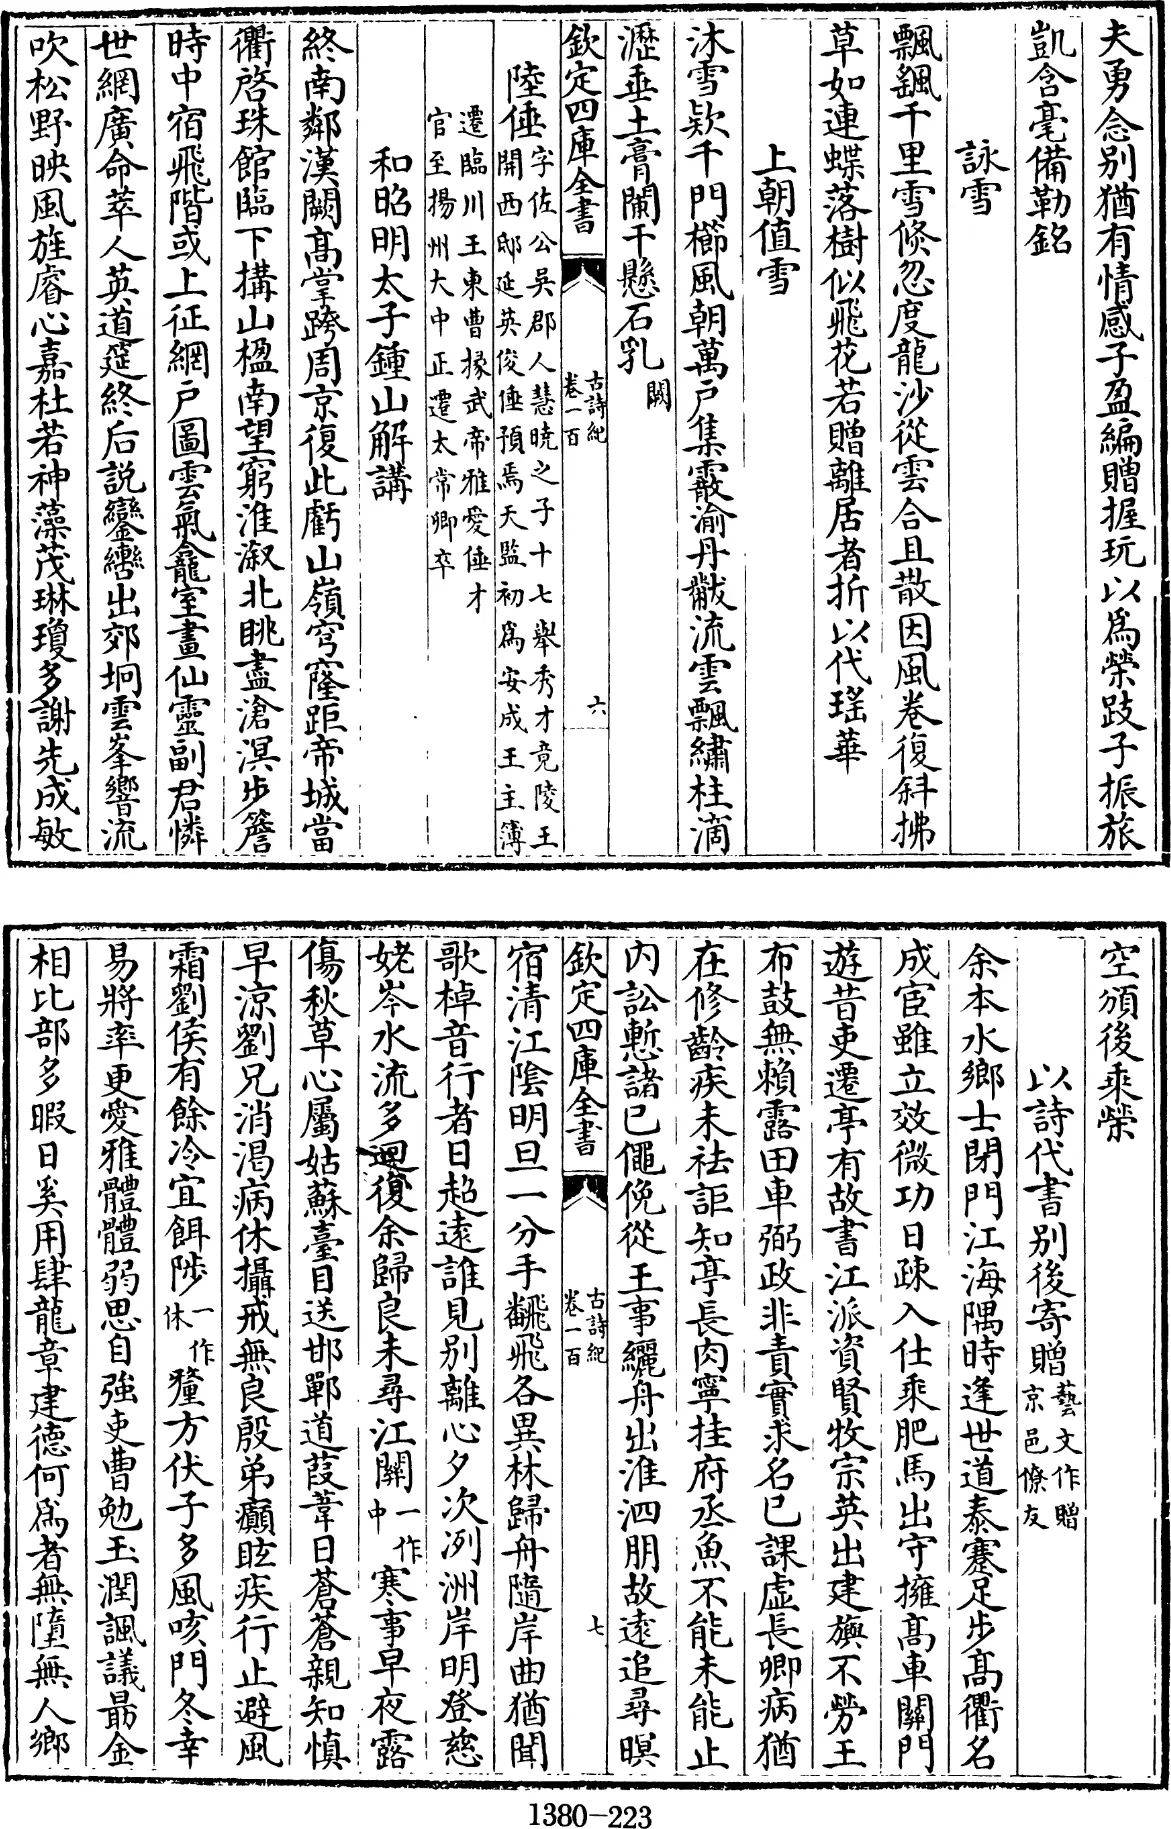 夫勇念别猶有情感子盈編贈握玩以爲榮跂子振旅
凱含毫備勒銘
詠雪
飄颻千里雪倐忽度龍沙從雲合且散因風卷復斜拂
草如連蝶落樹似飛花若贈離居者折以代瑶華
上朝值雪
沐雪款千門櫛風朝萬户集霰渝丹黻流雲飄繡柱滴
瀝垂土膏闌干懸石乳闕
欽定四庫全書
古詩紀
卷一百
六
陸倕字佐公吳郡人慧曉之子十七舉秀才竟陵王
開西邸延英俊倕預焉天監初爲安成王主簿
遷臨川王東曹掾武帝雅愛倕才
官至揚州大中正遷太常卿卒
和昭明太子鍾山解講
終南鄰漢闕髙掌跨周京復此虧山嶺穹窿距帝城當
衢啓珠館臨下搆山楹南望窮淮溆北眺盡滄溟步簷
時中宿飛階或上征網户圖雲氣龕室畫仙靈副君憐
世網廣命萃人英道筵終后説鑾轡出郊坰雲峯響流
吹松野映風旌睿心嘉杜若神藻茂琳瓊多謝先成敏
空頒後乘榮
以詩代書别後寄贈藝文作贈
京邑僚友
余本水鄉士閉門江海隅時逢世道泰蹇足步髙衢名
成宦雖立效微功日疎入仕乘肥馬出守擁髙車關門
遊昔吏遷亭有故書江派資賢牧宗英出建旟不勞王
布鼓無賴露田車弼政非責實求名已課虚長卿病猶
在修齡疾未祛詎知亭長肉寧挂府丞魚不能未能止
内訟慙諸已僶俛從王事纚舟出淮泗朋故遠追尋暝
欽定四庫全書
古詩紀
卷一百
七
宿清江陰明旦一分手翻飛各異林歸舟隨岸曲猶聞
歌棹音行者日超遠誰見别離心夕次洌洲岸明登慈
姥岑水流多迴復余歸良未尋江關一作
中寒事早夜露
傷秋草心屬姑蘇臺目送邯鄲道葭葦日蒼蒼親知慎
早凉劉兄消渴病休攝戒無良殷弟癲眩疾行止避風
霜劉侯有餘冷宜餌陟一作
休釐方伏子多風咳門冬幸
易將率更愛雅體體弱思自強吏曹勉玉潤諷議最金
相比部多暇日奚用肆龍章建德何爲者無墮無人鄉
1380-223